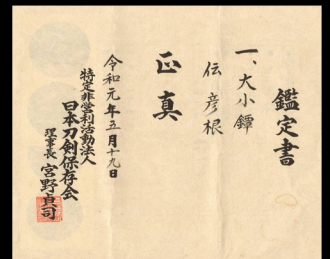 鑑定書
一、大小鐔
伝彦根
正真
令和元年五月十九日
特定非営利活動法人
日本刀剣保存会
理事長 宮野貞司